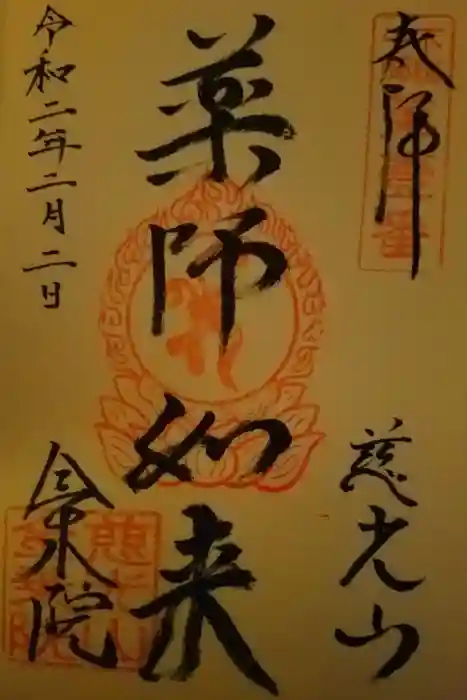 奉拝
慈光山
薬師如来
令和二年二月二日
金乗院